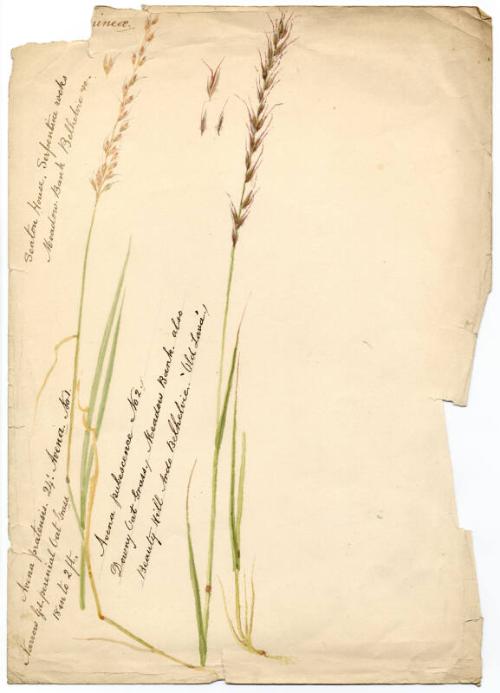 ineæ.
Seaton House. Serpentine rocks
Meadow Bank Belhelvie
Avena pratensis. 24. Avena. No 1.
Narrow perennial Oat Grass
18 in to 2 ft.
Avena pubescence No 2.
Downy Oat Grass, Meadow Bank also
Beauty Hill Belhelvie. "Old Lava".